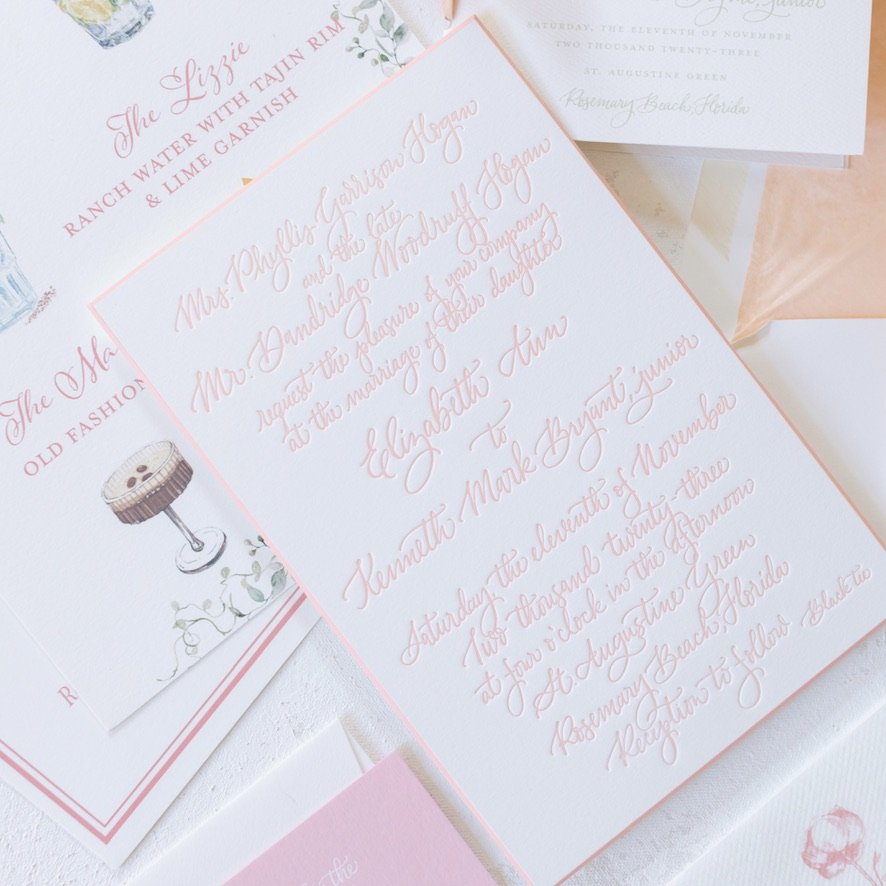 Mrs. Phyllis Garrison Hogan
and the late
Mr. Dandridge Woodruff Hogan
request the pleasure of your company
at the marriage of their daughter
Elizabeth Ann
to
Kenneth Mark Bryant, junior
Saturday the eleventh of November
Two thousand twenty-three
at four o'clock in the afternoon
St. Augustine Green
Rosemary Beach, Florida
Reception to follow
Black tie
The Lizzie
RANCH WATER WITH TAJIN RIM
& LIME GARNISH
The Ma
OLD FASHION
R
junior
SATURDAY, THE ELEVENTH OF NOVEMBER
TWO THOUSAND TWENTY-THREE
ST. AUGUSTINE GREEN
Rosemary Beach, Florida
the